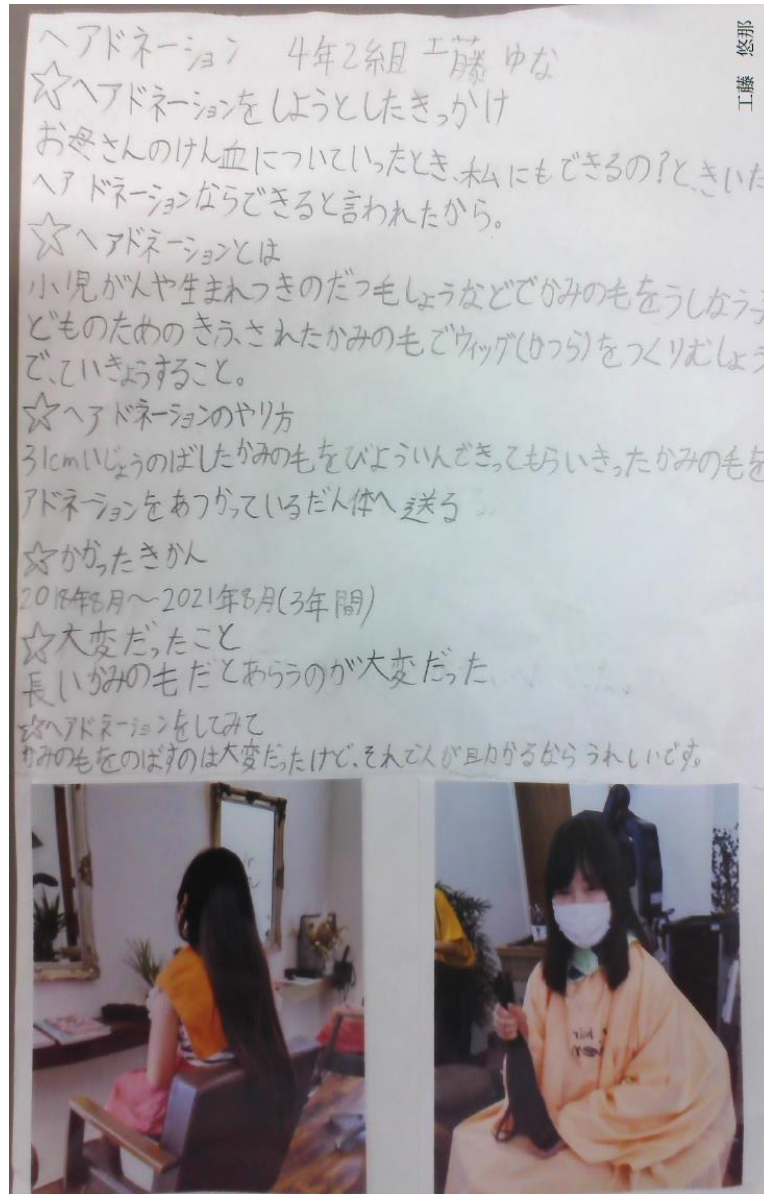 ヘアドネーション 4年2組 工藤 ゆな
工藤 悠那
☆ヘアドネーションをしようとしたきっかけ
お母さんのけん血についていったとき、私にもできるの?と、きいた
ヘアドネーションならできると言われたから。
☆ヘアドネーションとは
小児がんや生まれつきのだつ毛しょうなどでかみのもをうしなう子
どものためのきふ、されたかみのもでウィッグ(かつら)をつくりむしょう
で、ていきょうすること。
☆ヘアドネーションのやり方
31cmいじょうのばしたかみのもをびよういんできってもらいきったかみのもを
アドネーションをあつかっているだん体へ送る
☆かかったきかん
2018年8月〜2021年8月(3年間)
☆大変だったこと
長いかみのもだとあらうのが大変だった
☆ヘアドネーションをしてみて
かみのもをのばすのは大変だったけど、それで人が助かるならうれしいです。